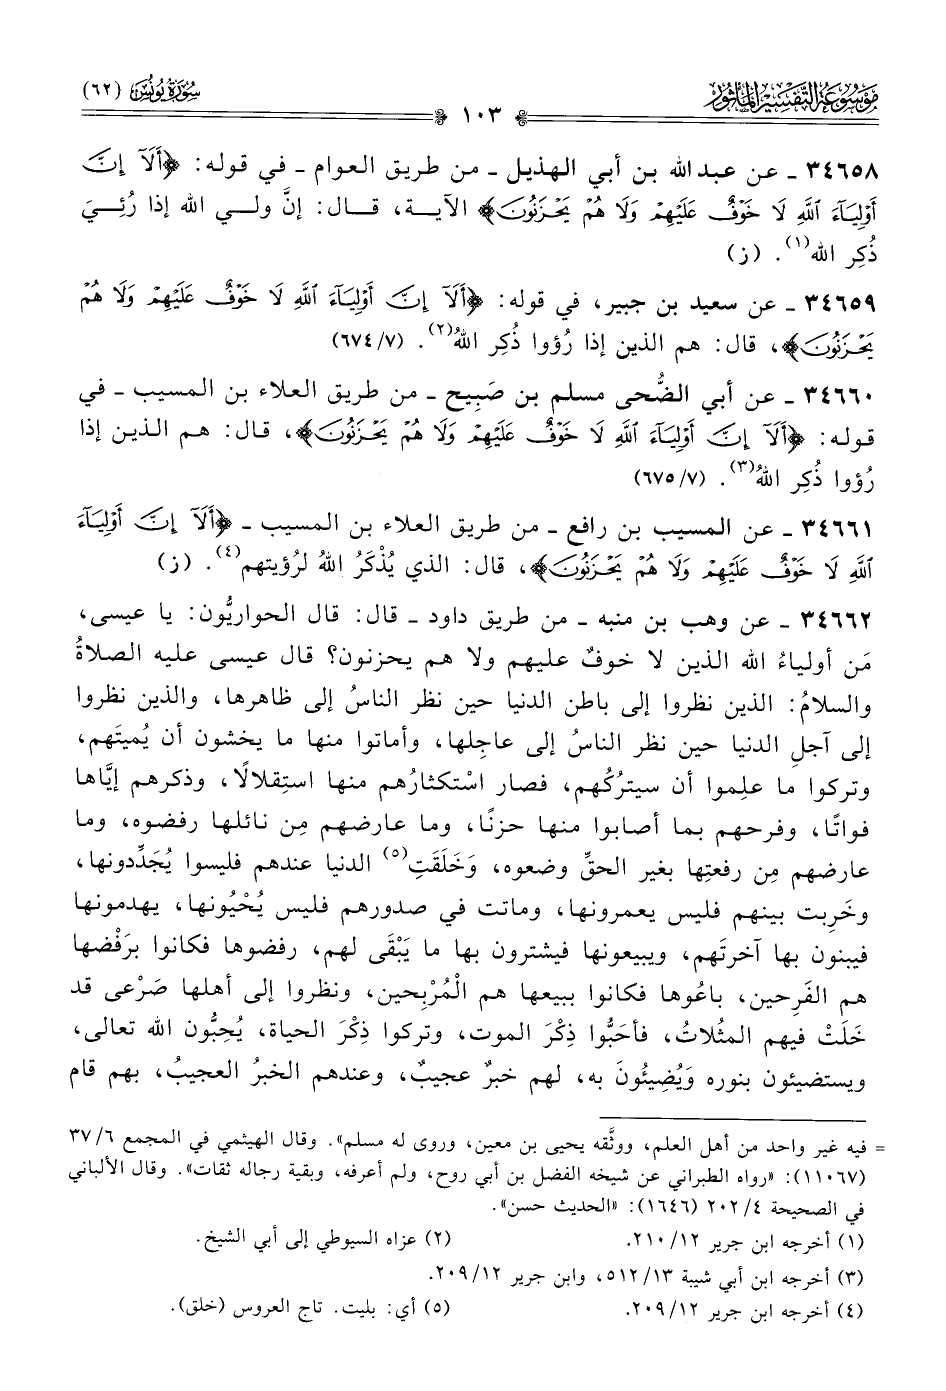 مَوْسُوعَةُ التَّفْسِيرِ المَأْثُورِ
﴾ ١٠٣ ﴿
سُورَةُ يُونُسَ (٦٢)
٣٤٦٥٨ ـ عن عبدالله بن أبي الهذيل ـ من طريق العوام ـ في قوله: ﴿أَلَآ إِنَّ
أَوْلِيَآءَ ٱللَّهِ لَا خَوْفٌ عَلَيْهِمْ وَلَا هُمْ يَحْزَنُونَ﴾ الآية، قال: إنَّ ولي الله إذا رُئِيَ
ذُكِر الله(١). (ز)
٣٤٦٥٩ ـ عن سعيد بن جبير، في قوله: ﴿أَلَآ إِنَّ أَوْلِيَآءَ ٱللَّهِ لَا خَوْفٌ عَلَيْهِمْ وَلَا هُمْ
يَحْزَنُونَ﴾، قال: هم الذين إذا رُؤوا ذُكِر اللهُ(٢). (٦٧٤/٧)
٣٤٦٦٠ ـ عن أبي الضُّحى مسلم بن صَبِيح ـ من طريق العلاء بن المسيب ـ في
قوله: ﴿أَلَآ إِنَّ أَوْلِيَآءَ ٱللَّهِ لَا خَوْفٌ عَلَيْهِمْ وَلَا هُمْ يَحْزَنُونَ﴾، قال: هم الذين إذا
رُؤوا ذُكِر اللهُ(٣). (٦٧٥/٧)
٣٤٦٦١ ـ عن المسيب بن رافع ـ من طريق العلاء بن المسيب ـ ﴿أَلَآ إِنَّ أَوْلِيَآءَ
ٱللَّهِ لَا خَوْفٌ عَلَيْهِمْ وَلَا هُمْ يَحْزَنُونَ﴾، قال: الذي يُذْكَرُ اللهُ لرُؤيتهم(٤). (ز)
٣٤٦٦٢ ـ عن وهب بن منبه ـ من طريق داود ـ قال: قال الحواريُّون: يا عيسى،
مَن أولياءُ الله الذين لا خوفٌ عليهم ولا هم يحزنون؟ قال عيسى عليه الصلاةُ
والسلامُ: الذين نظروا إلى باطن الدنيا حين نظر الناسُ إلى ظاهرها، والذين نظروا
إلى آجلِ الدنيا حين نظر الناسُ إلى عاجِلها، وأماتوا منها ما يخشون أن يُميتَهم،
وتركوا ما علِموا أن سيتركُهم، فصار اسْتكثارُهم منها استِقلالًا، وذكرهم إيَّاها
فواتًا، وفرحهم بما أصابوا منها حزنًا، وما عارضهم مِن نائلها رفضوه، وما
عارضهم مِن رفعتِها بغير الحقِّ وضعوه، وَخَلَقَتِ(٥) الدنيا عندهم فليسوا يُجَدِّدونها،
وخَرِبت بينهم فليس يعمرونها، وماتت في صدورهم فليس يُحْيُونها، يهدمونها
فيبنون بها آخرتَهم، ويبيعونها فيشترون بها ما يَبْقَى لهم، رفضوها فكانوا برَفْضها
هم الفَرِحين، باعُوها فكانوا ببيعها هم الْمُرْبِحين، ونظروا إلى أهلها صَرْعى قد
خَلَتْ فيهم المثُلاتُ، فأحَبُّوا ذِكْرَ الموت، وتركوا ذِكْرَ الحياة، يُحِبُّون الله تعالى،
ويستضيئون بنوره وَيُضِيئُونَ به، لهم خبرٌ عجيبٌ، وعندهم الخبرُ العجيبُ، بهم قام
= فيه غير واحد من أهل العلم، ووثَّقه يحيى بن معين، وروى له مسلم». وقال الهيثمي في المجمع ٣٧/٦
(١١٠٦٧): «رواه الطبراني عن شيخه الفضل بن أبي روح، ولم أعرفه، وبقية رجاله ثقات». وقال الألباني
في الصحيحة ٢٠٢/٤ (١٦٤٦): «الحديث حسن».
(١) أخرجه ابن جرير ٢١٠/١٢. (٢) عزاه السيوطي إلى أبي الشيخ.
(٣) أخرجه ابن أبي شيبة ٥١٢/١٣، وابن جرير ٢٠٩/١٢.
(٤) أخرجه ابن جرير ٢٠٩/١٢. (٥) أي: بليت. تاج العروس (خلق).